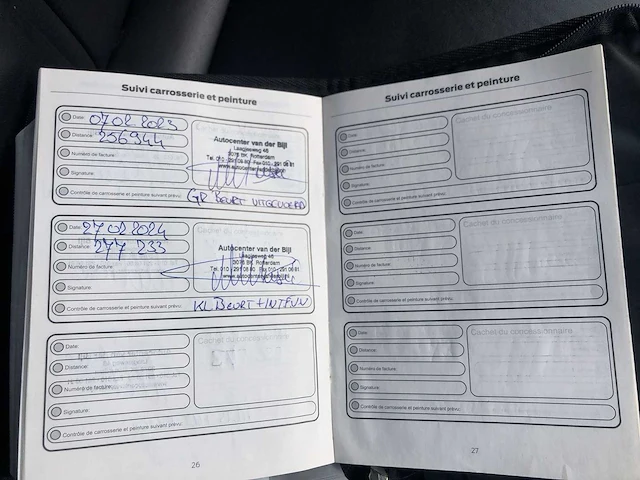 Suivi carrosserie et peinture
Date: 07 02 2023
Distance: 256944
Numéro de facture:
Signature:
Autocenter van der Bijl
Laagjesweg 46
3076 BK Rotterdam
Tel. 010 - 291 08 80 Fax 010 - 291 06 81
Contrôle de carrosserie et peinture suivant prévu: GR BEURT UITGEVOERD
Date: 27 02 2024
Distance: 277 233
Numéro de facture:
Signature:
Autocenter van der Bijl
Laagjesweg 46
3076 BK Rotterdam
Tel. 010 - 291 08 80 Fax 010 - 291 06 81
Contrôle de carrosserie et peinture suivant prévu: KL BEURT + INTFUN
Date:
Distance:
Numéro de facture:
Signature:
Cachet du concessionnaire
Contrôle de carrosserie et peinture suivant prévu:
26
Suivi carrosserie et peinture
Date:
Distance:
Numéro de facture:
Signature:
Cachet du concessionnaire
Contrôle de carrosserie et peinture suivant prévu:
Date:
Distance:
Numéro de facture:
Signature:
Cachet du concessionnaire
Contrôle de carrosserie et peinture suivant prévu:
Date:
Distance:
Numéro de facture:
Signature:
Cachet du concessionnaire
Contrôle de carrosserie et peinture suivant prévu:
27